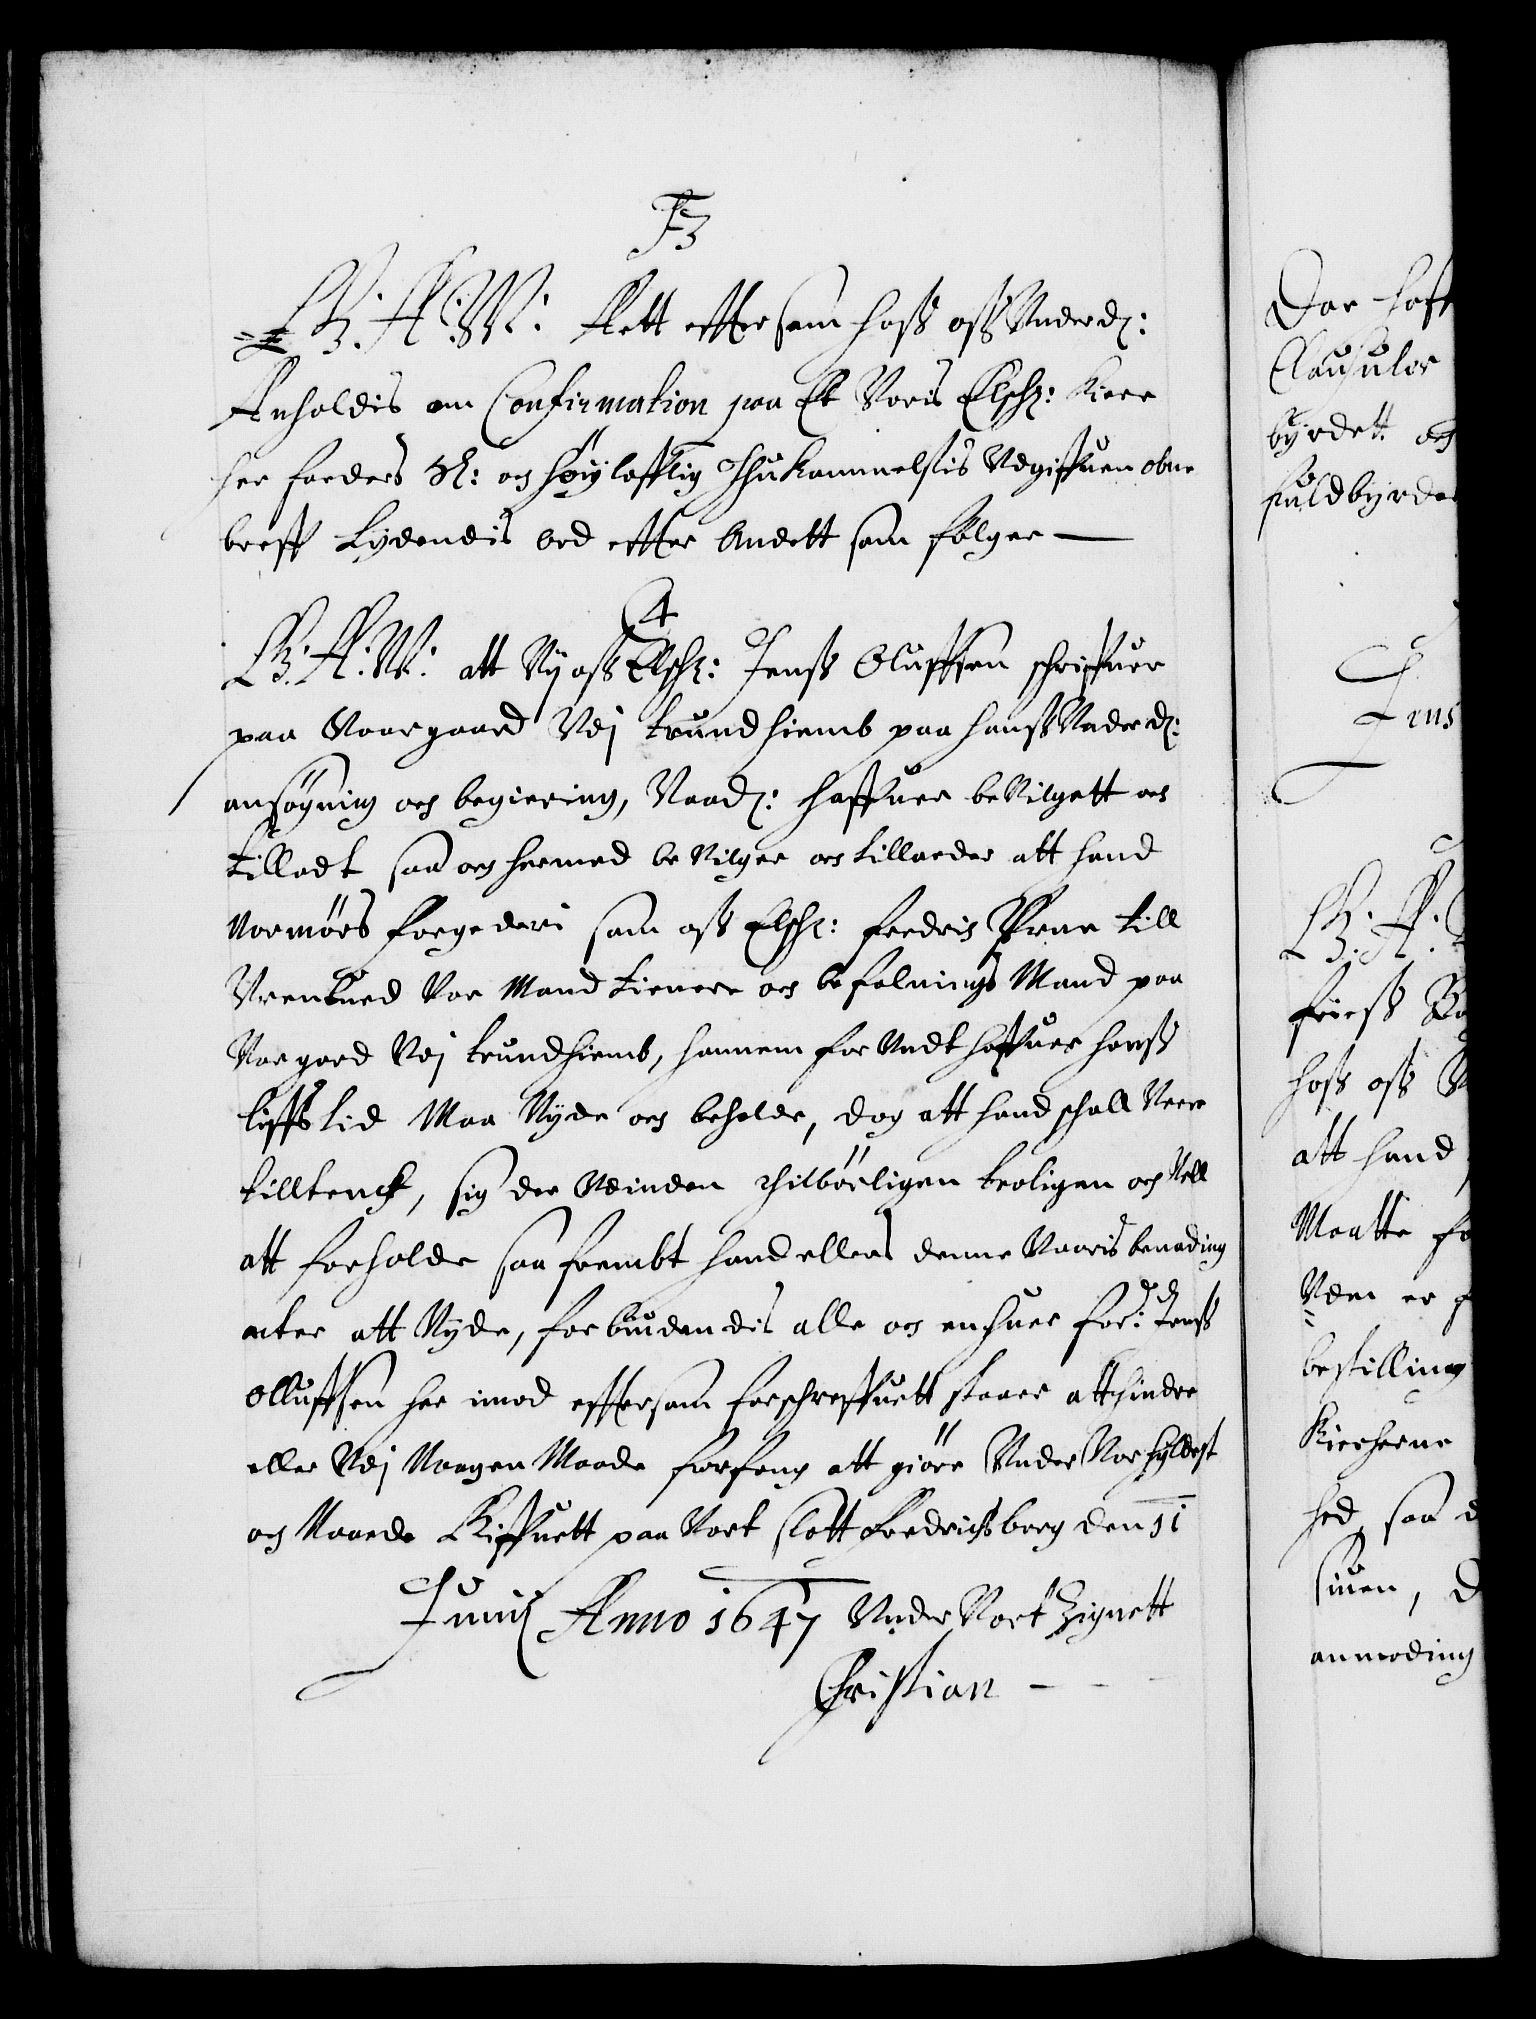 F3
G. A. W. Att effter som hoß oß Underd:
Anholdis om Confirmation paa Et Voris Elsch: Kiere
her faders Sl: og høylofflig Ihukommelsis Udgiffuen obne
breff Lydendis Ord effter Andett som følger
4
G. A. W. att Vij oß Elsch: Jenß Oluffsen schriffuer
paa Vaargaard Vdj trundhiemb paa hanß Underd:
ansøgning och begiering, Naad: haffuer beVilgett och
tilladt saa och hermed beVilger och tillaeder att hand
Normørs fogederi som oß Elsch: fredrich Urne till
Vor Mand tienere och befalnings Mand paa
Vor gard Vdj trundhiemb, hannem forUndt haffuer hanß
liffs tid Maa Nyde och beholde, dog att hand schall Vere
tilltenckt, sig der Udinden schilbørligen troligen och Vell
att forholde saa frembt hand ellers denne Vaaris benading
acter att Nyde, forbiudendis alle och enhuer for: Jenß
Olluffsen her imod effter som forschreffuett staaer att hindre
eller Vdj Nogen Maade forfang att giøre Under Vor hyldest
og Naade Giffuett paa Vort slott fredrichsborg den 11
Junij Anno 1647 Under Vort Zignett
Christian
Dar haff
Clausuler
byrdett och
fuldbyrde
Jens
G. A.
frieß
hoß oß
att hand
Maatte fo
Udm er f
bestilling
Kircherne
hed, saa d
siuen, D
anmoding